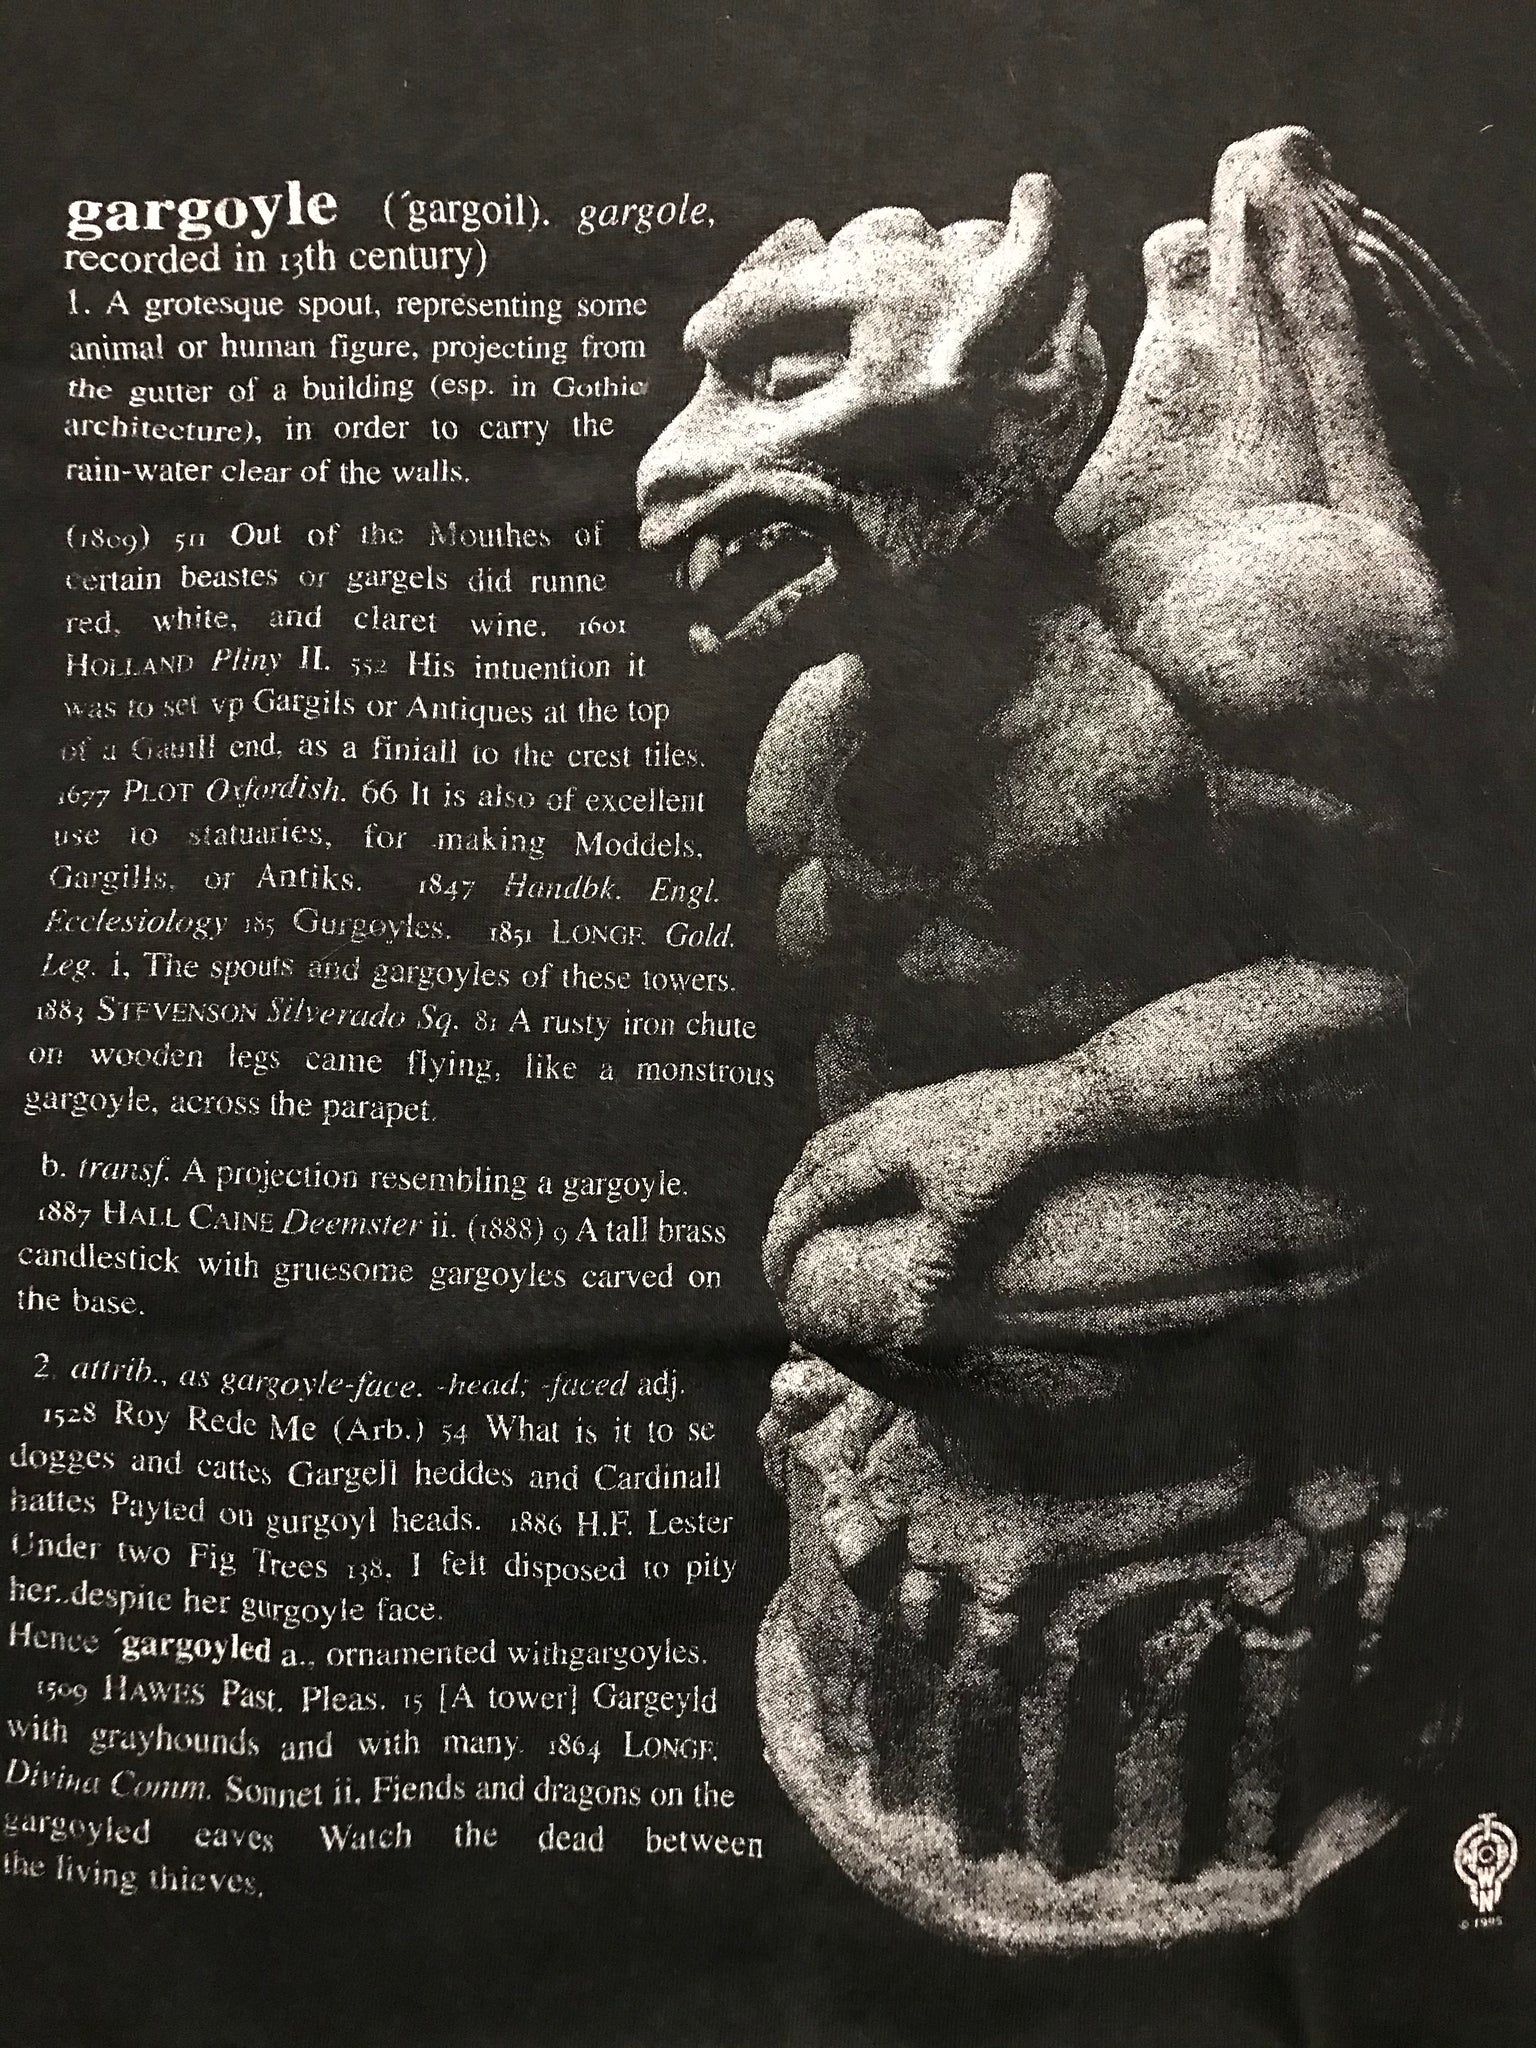 gargoyle (´gargoil). gargole,
recorded in 13th century)
1. A grotesque spout, representing some
animal or human figure, projecting from
the gutter of a building (esp. in Gothic
architecture), in order to carry the
rain-water clear of the walls.
(1809) 511 Out of the Mouthes of
certain beastes or gargels did runne
red, white, and claret wine. 1601
HOLLAND Pliny II. 552 His intuention it
was to set vp Gargils or Antiques at the top
of a Gauill end, as a finiall to the crest tiles.
1677 PLOT Oxfordish. 66 It is also of excellent
use to statuaries, for making Moddels,
Gargills, or Antiks. 1847 Handbk. Engl.
Ecclesiology 185 Gurgoyles. 1851 LONGF. Gold.
Leg. i, The spouts and gargoyles of these towers.
1883 STEVENSON Silverado Sq. 81 A rusty iron chute
on wooden legs came flying, like a monstrous
gargoyle, across the parapet.
b. transf. A projection resembling a gargoyle.
1887 HALL CAINE Deemster ii. (1888) 9 A tall brass
candlestick with gruesome gargoyles carved on
the base.
2. attrib., as gargoyle-face. -head; -faced adj.
1528 Roy Rede Me (Arb.) 54 What is it to se
dogges and cattes Gargell heddes and Cardinall
hattes Payted on gurgoyl heads. 1886 H.F. Lester
Under two Fig Trees 138. I felt disposed to pity
her..despite her gurgoyle face.
Hence ´gargoyled a., ornamented withgargoyles.
1509 HAWES Past. Pleas. 15 [A tower] Gargeyld
with grayhounds and with many. 1864 LONGF.
Divina Comm. Sonnet ii. Fiends and dragons on the
gargoyled eaves Watch the dead between
the living thieves.
© 1995